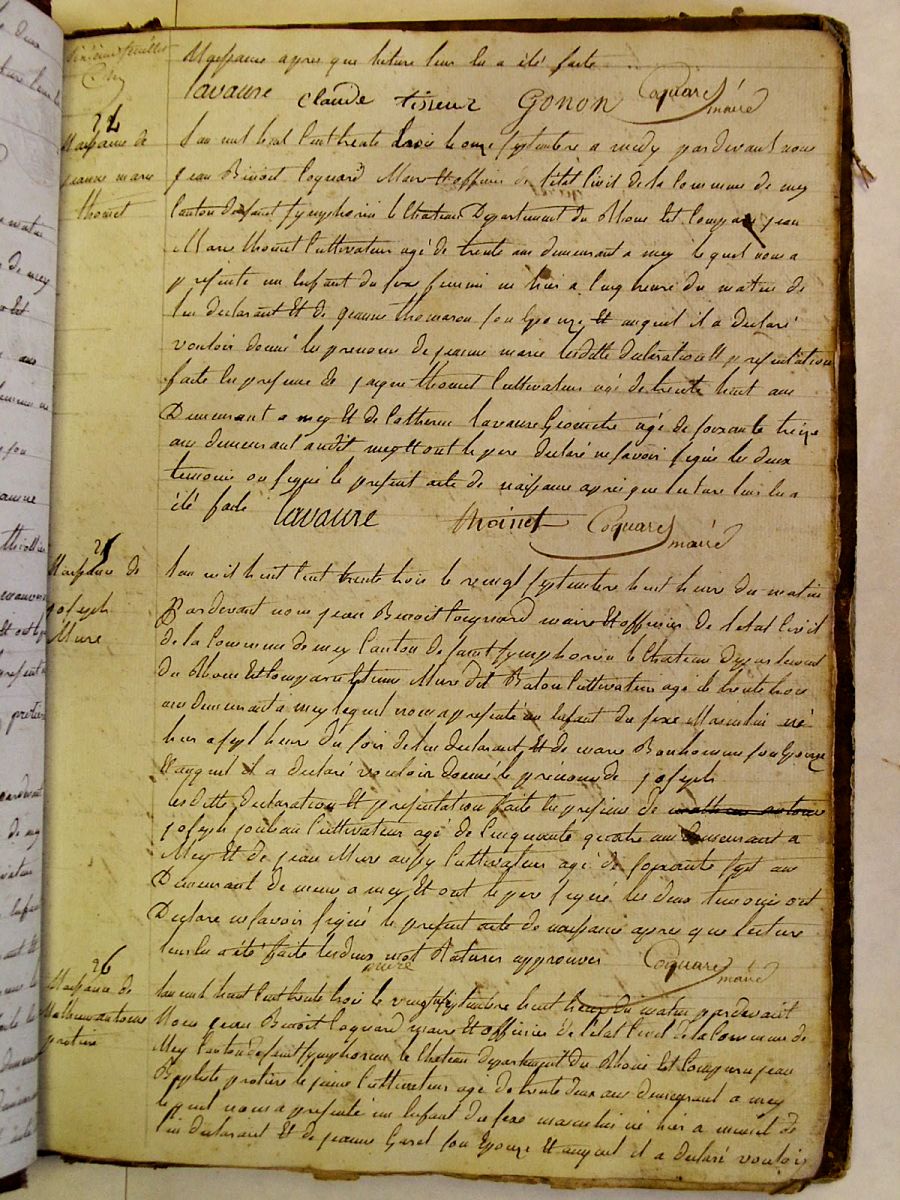 Naissance apres que lecture leur lu a été faite
Lavaure claude tisseur Gonon Coquard
maire
24
Naissance de
jeanne marie
thoinet
L'an mil huit cent trente trois le onze septembre a midy pardevant nous
jean Benoit Coquard Maire et officier de l'état civil de la Commune de mey
Canton de saint symphorien le Chateau Département du Rhone est comparu jean
Marie thoinet Cultivateur agé de trente ans demeurant a mey lequel nous a
présenté un Enfant du sexe féminin né hier a cinq heures du matin de
lui declarant et de jeanne thomaron son Epouze et auquel il a declaré
vouloir donné les prenoms de jeanne marie lesditte declaration et présentation
faite en presence de jacque thoinet Cultivateur agé de trente huit ans
Demeurant a mey et de Catherin Lavaure Geometre agé de soixante treize
ans demeurant audit mey et ont le pere declaré ne savoir signé les deux
temoins on signé le present acte de naissance apres que lecture leur lu a
été faite Lavaure thoinet Coquard
maire
25
Naissance de
joseph
Mure
L'an mil huit cent trente trois le vingt septembre huit heure du matin
Pardevant nous jean Benoit Coquard maire et officier de l'état civil
de la Commune de mey Canton de saint symphorien le Chateau departement
du Rhone est Comparu Etienne Mure dit Baton Cultivateur agé de trente trois
ans demeurant a mey lequel nous a presenté un Enfant du sexe Masculin né
hier a sept heure du soir de lui declarant et de marie Bonhomme son Epouze
et auquel il a declaré vouloir donné le prénom de joseph
lesditte declaration et présentation faite en presence de
joseph joubau Cultivateur agé de Cinquante quatre ans demeurant a
Mey et de jean Mure aussy Cultivateur agé de soixante sept ans
Demeurant de meme a mey et ont le pere signé les deux temoins ont
Declare ne savoir signé le present acte de naissance apres que lecture
leur lu a été faite les deux mot Raturés approuver Coquard
mure maire
26
Naissance de
Mathieu antoine
protiere
L'an mil huit cent trente trois le vingt septembre huit heur du matin pardevant
Nous jean Benoit Coquard maire et officier de l'état civil de la Commune de
Mey Canton de saint symphorien le Chateau departement du Rhone est Comparu jean
Baptiste protiere le jeune Cultivateur agé de trente deux ans demeurant a mey
lequel nous a presenté un Enfant du sexe masculin né hier a minuit de
lui declarant et de jeanne Garel son Epouze et auquel il a declaré vouloir